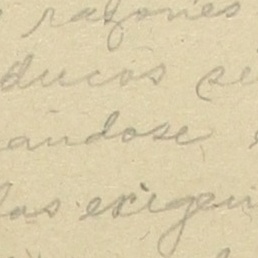 razones
ducos se
andose
las exigen